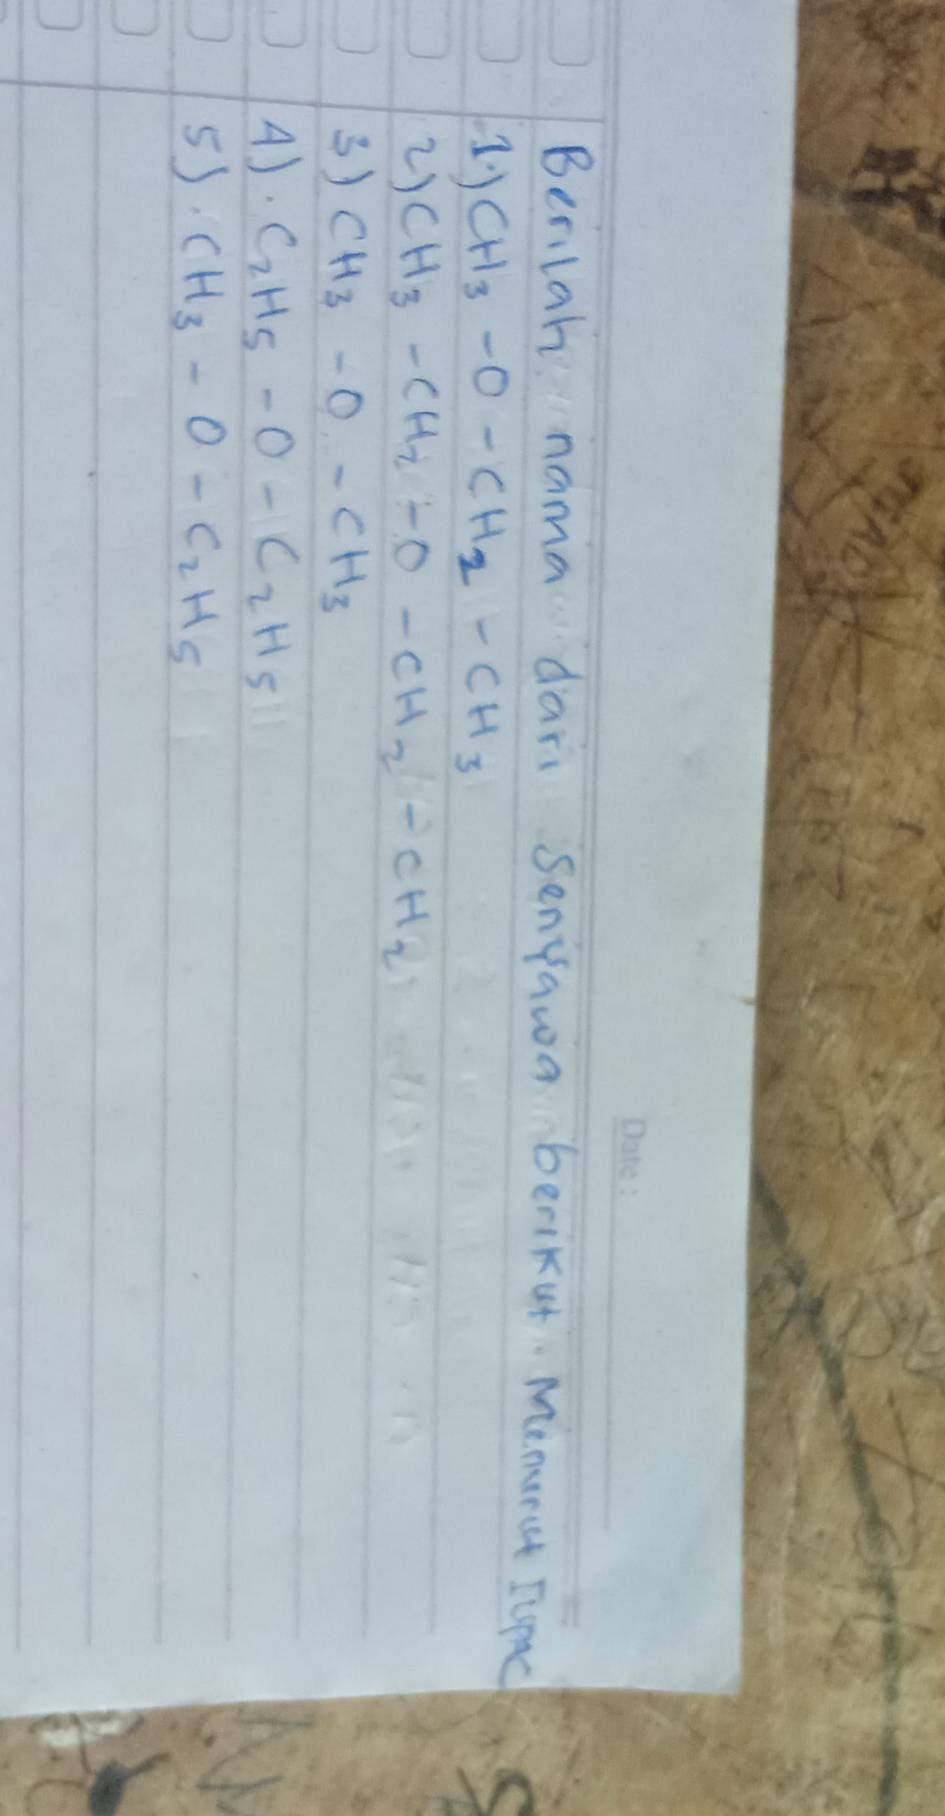 Date:
Berilah nama dari Senyawa berikut. Menurut Iupac
1.) CH3 - O - CH2 - CH3
2) CH3 - CH2 - O - CH2 - CH2
3) CH3 - O - CH3
4) . C2H5 - O - C2H5
5) . CH3 - O - C2H5